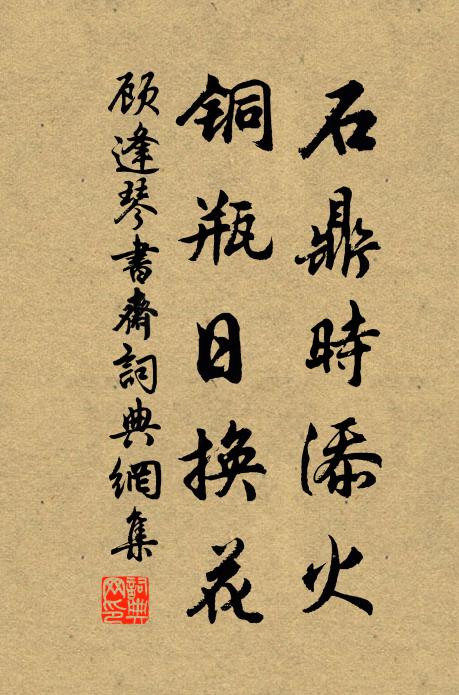 石鼎時添火
銅瓶日换花
顾逢琴書齋詞典網集
詞典网印